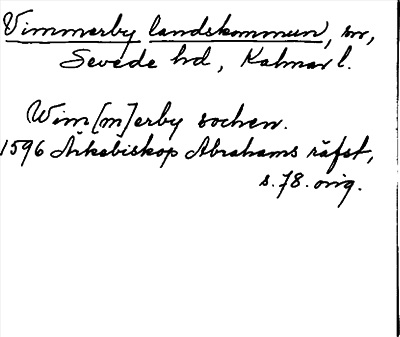 Vimmerby landskommun, sn,
Sevede hd, Kalmar l.
Wim[m]erby sochen.
1596 Ärkebiskop Abrahams räfst,
s. 78. orig.